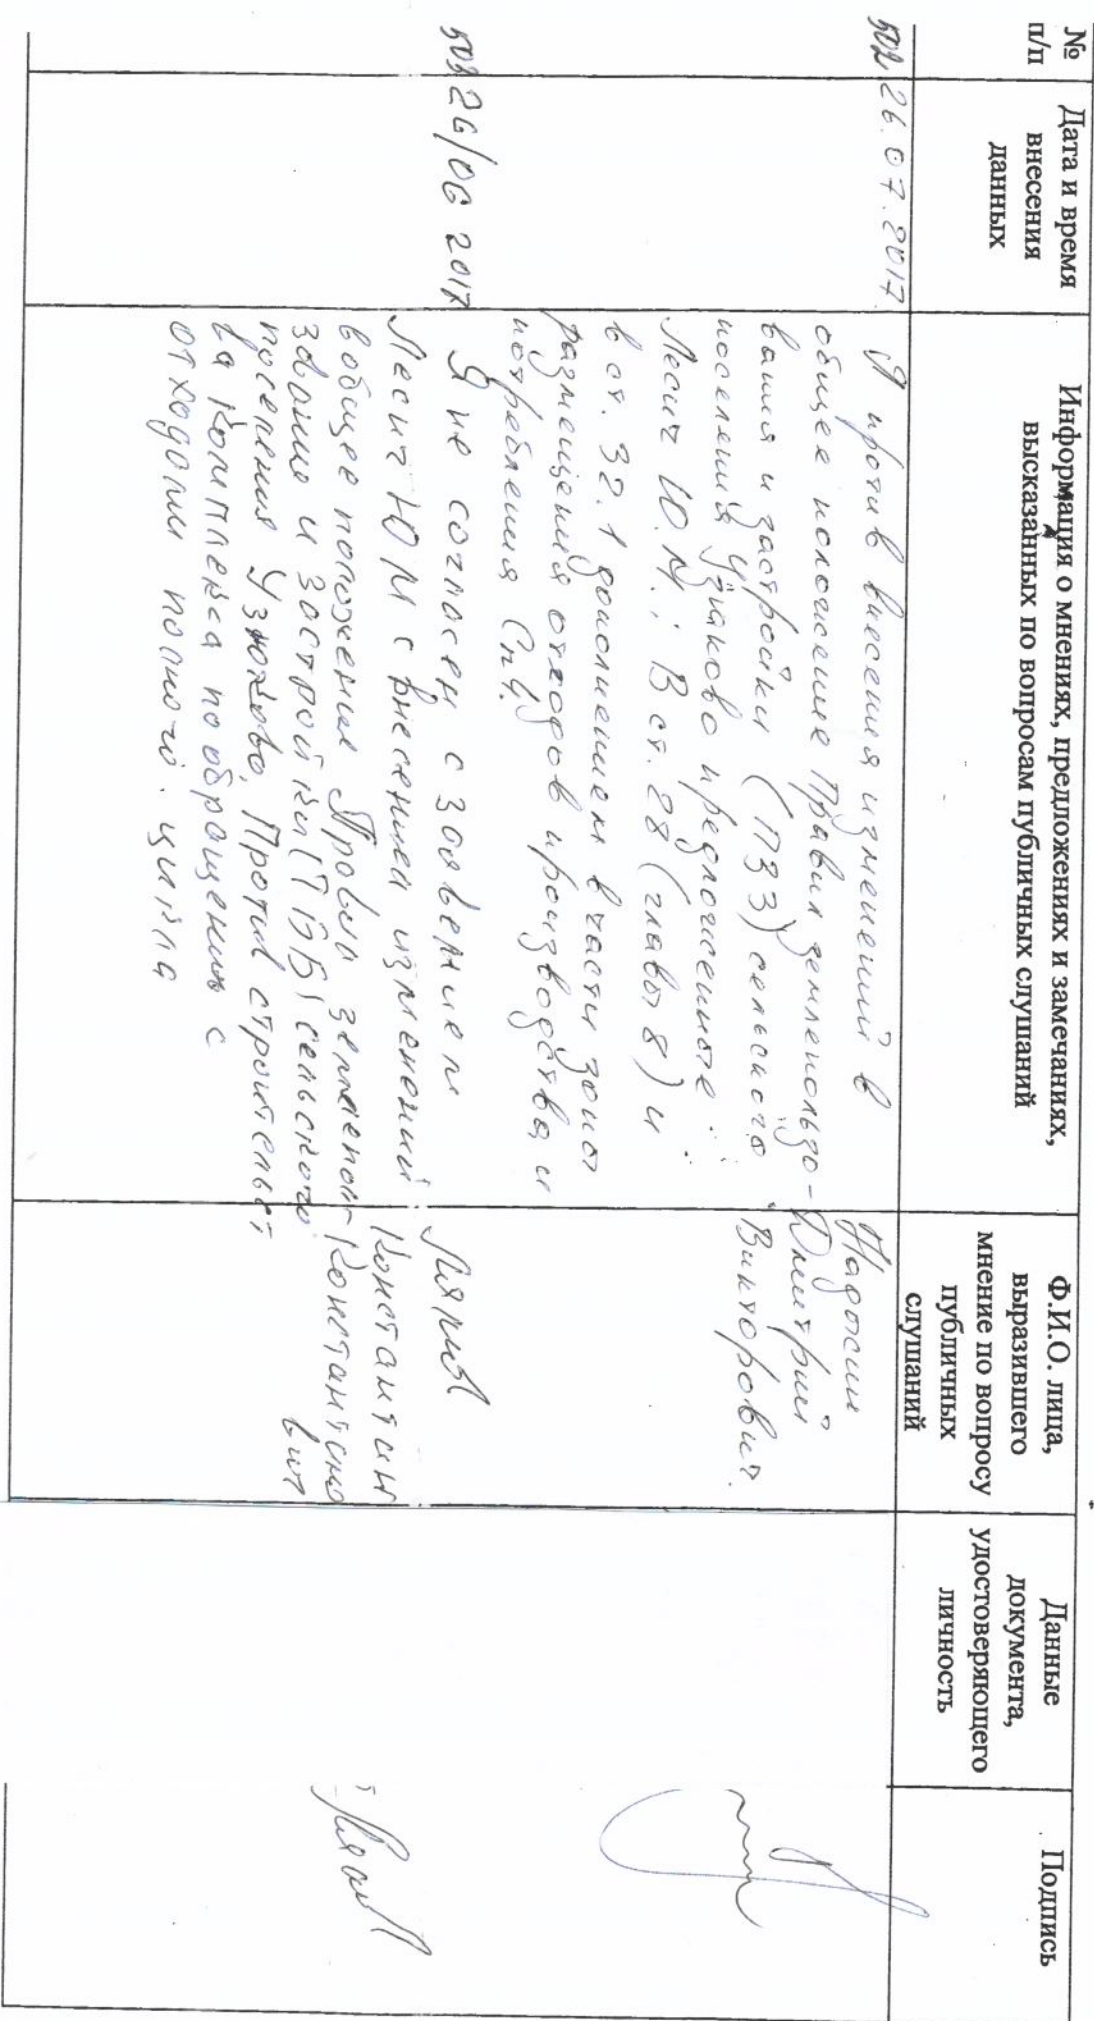 № п/п
Дата и время внесения данных
Информация о мнениях, предложениях и замечаниях, высказанных по вопросам публичных слушаний
Ф.И.О. лица, выразившего мнение по вопросу публичных слушаний
Данные документа, удостоверяющего личность
Подпись
502 26.07.2017
Я против внесения изменений в
общее положение Правил землепользо-
вания и застройки (ПЗЗ) сельского
поселения Узуново предложенные
Лесич Ю.М.: В ст. 28 (главы 8) и
в ст. 32.1 дополнением в части зоны
размещения отходов производства и
потребления Сп4.
Надосин
Дмитрий
Викторович.
503 26/06 2017
Я не согласен с заявлением
Лесит ЮМ с внесением изменений
вобщее положения Правил землепол-
зованию и застройки сельского
поселения Против строительст
ва комплекса по обращению с
отходами полного цикла
Константин
Константино
вич